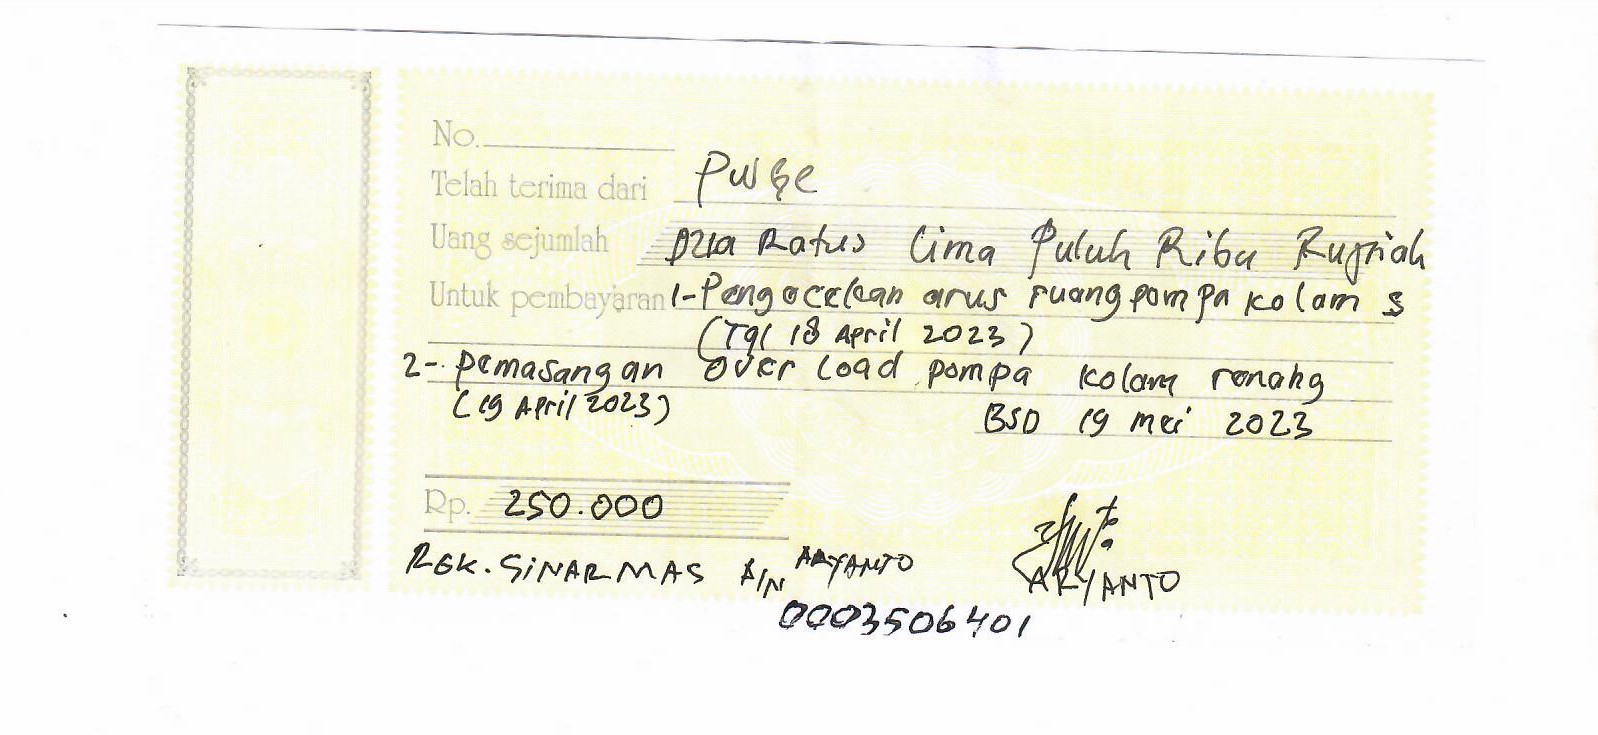 No.
Telah terima dari Pwse
Uang sejumlah Dua Ratus Lima Puluh Ribu Rupiah
Untuk pembayaran 1- Pengecekan arus ruang pompa kolam s
(Tgl 18 April 2023)
2- Pemasangan over load pompa kolam renang
(19 April 2023) BSD 19 mei 2023
Rp. 250.000
REK. SINARMAS A/N ARYANTO
ARYANTO
0003506401